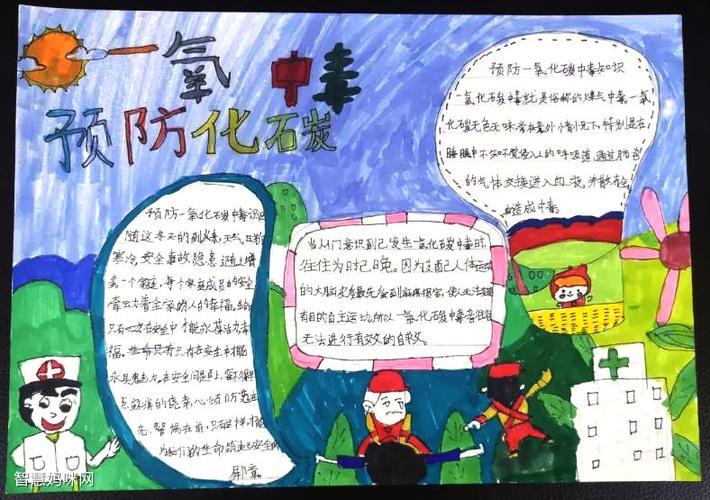 一氧 中毒
预防化石炭
预防一氧化碳中毒知识
一氧化碳中毒就是俗称的煤气中毒一氧
化碳无色无味,常在意外情况下,特别是在
睡眠中不知不觉侵入人的呼吸道,通过肺部
的气体交换进入血液,并散布全
造成中毒。
预防一氧化碳中毒
随这冬天的到来,天气
寒冷,安全事故隐患
一个家庭,每个家庭成员的安全
牵动着全家的人的幸福。
只有在安全中才能永葆活力
福。生命只有在安全中才能
永具魅力,在安全问题上,
在前,只有这样,才能
为我们的生命筑起安全的
当人们意识到已发生一氧化碳中毒时,
往往为时已晚。因为支配人体运动
的大脑皮质最先受到麻痹损害,使人无法实现
有目的自主运动,所以一氧化碳中毒者往往
无法进行有效的自救。
智慧妈咪网